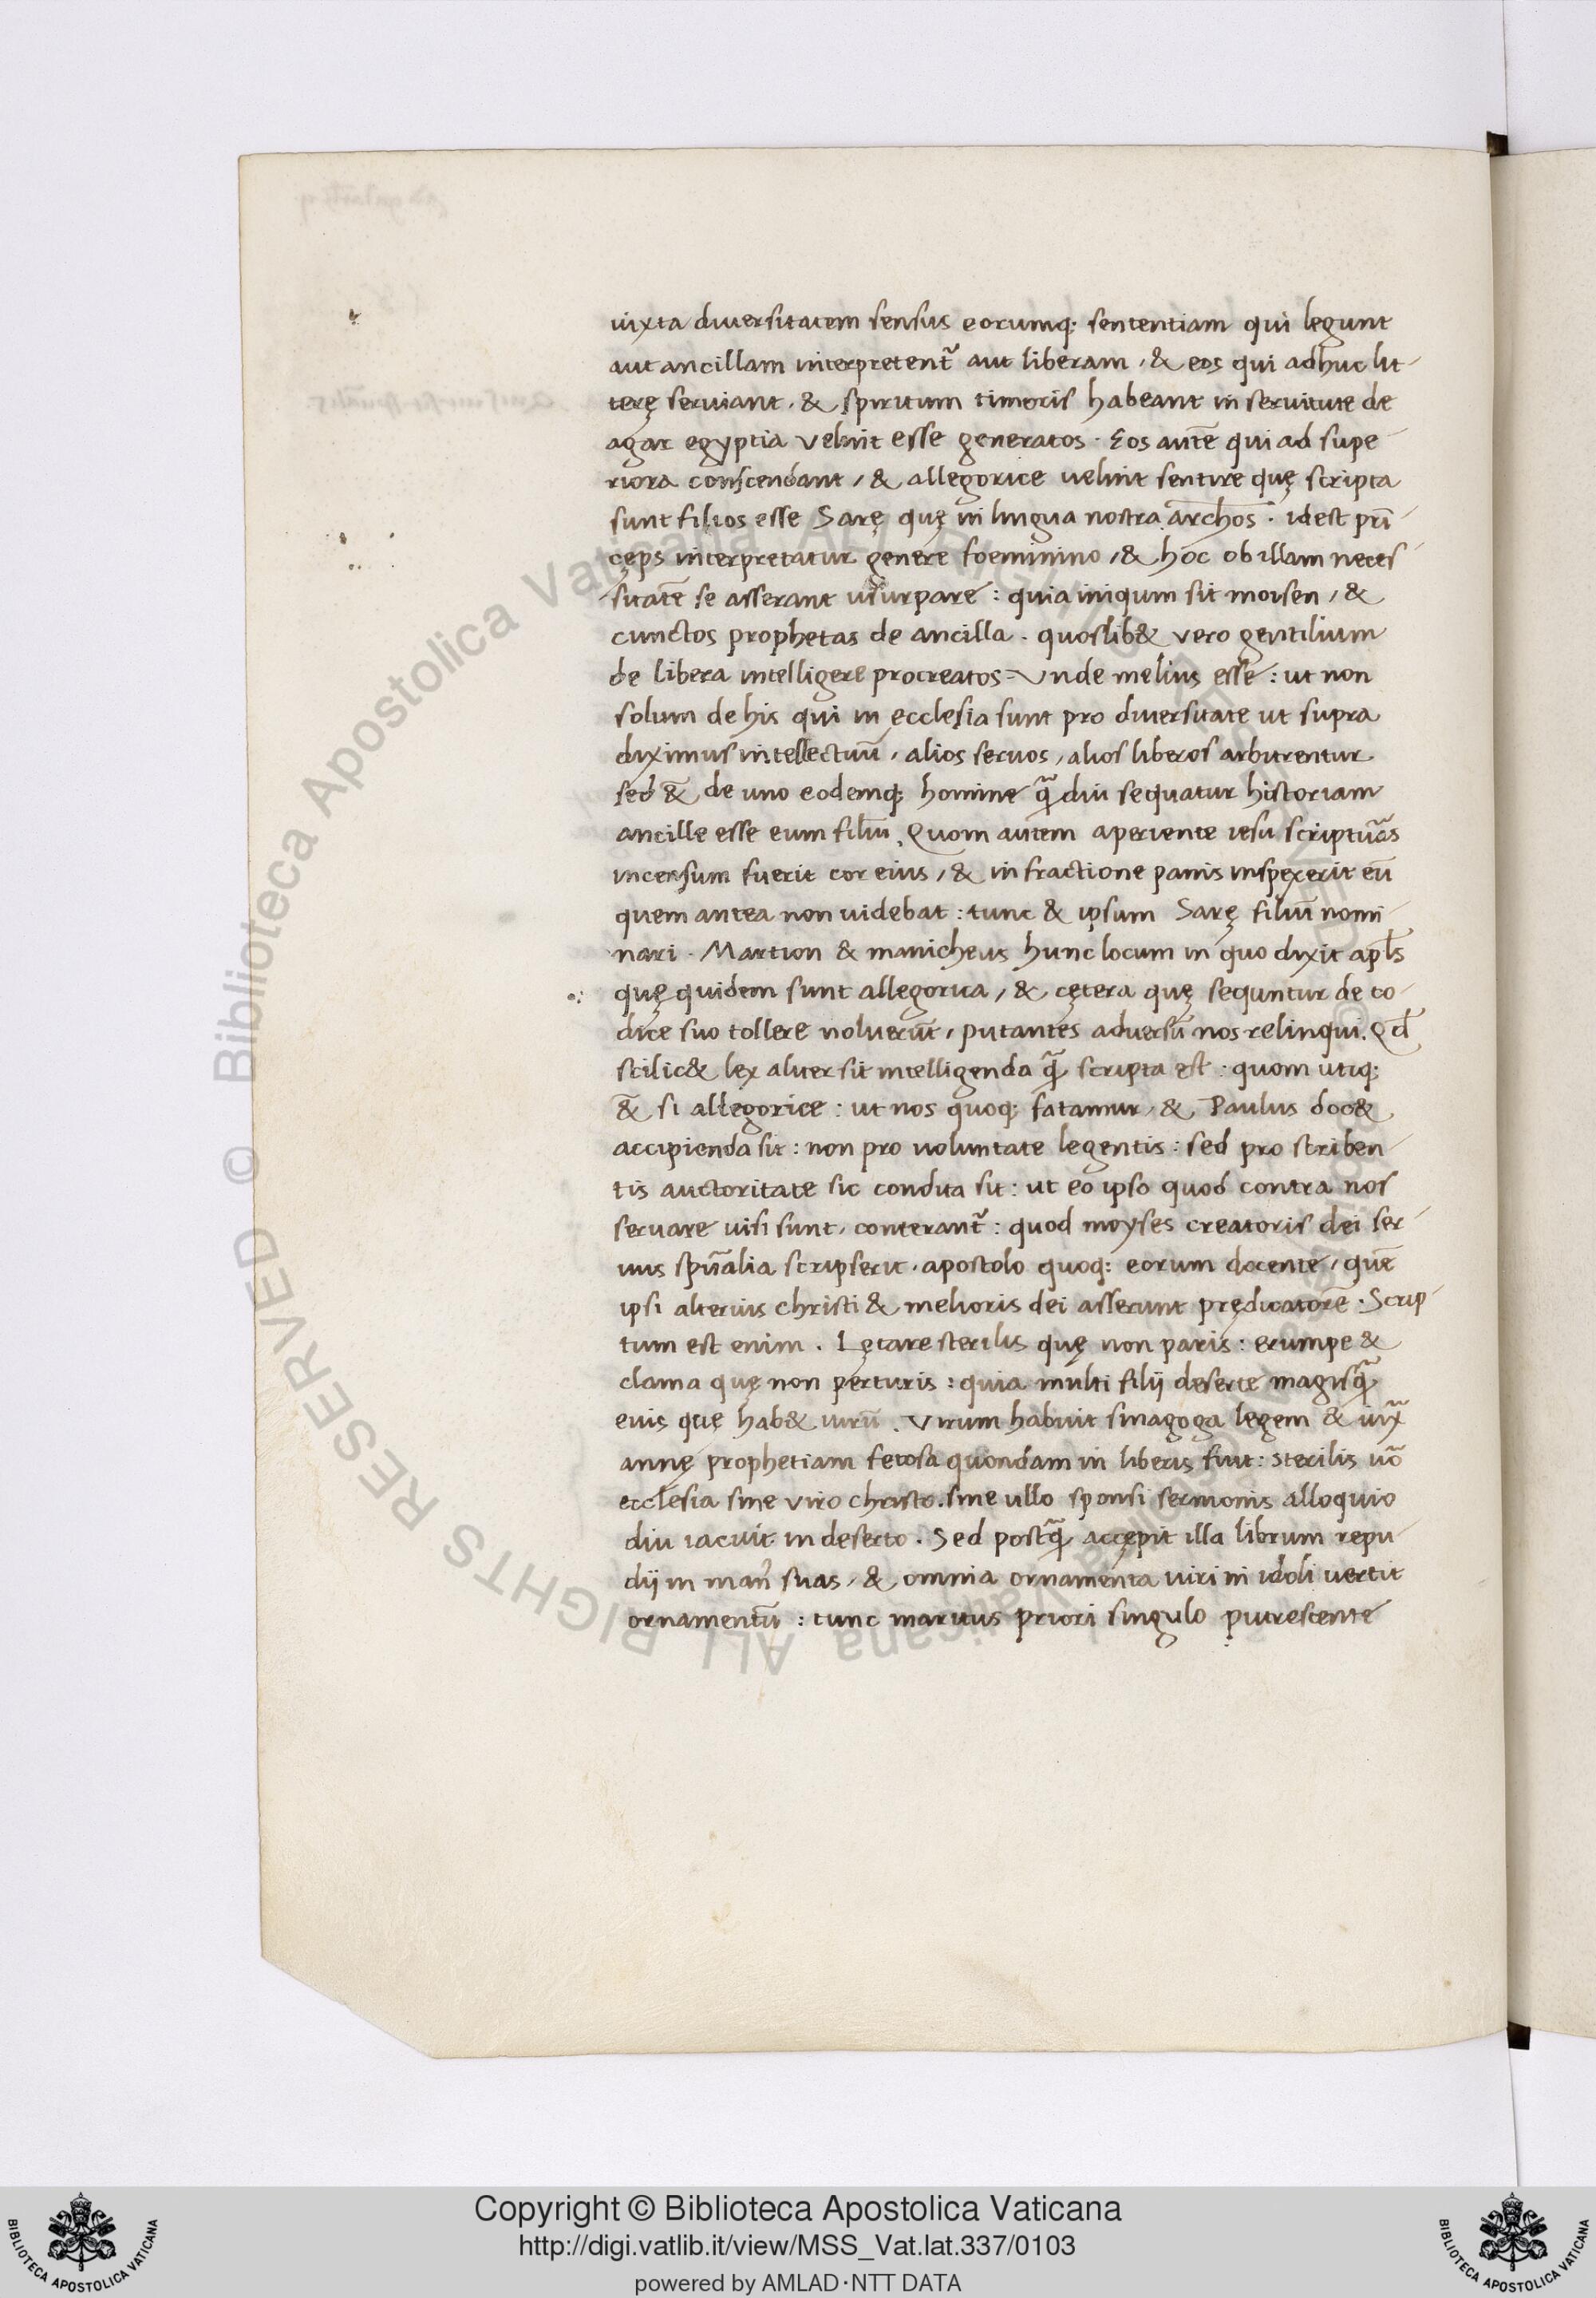 iuxta diuersitatem sensus eorumq; sententiam qui legunt
aut ancillam interpretent᷑ aut liberam, & eos qui adhuc lit-
terę seruiant, & spiritum timoris habeant in seruitute de
agar egyptia velint esse generatos. Eos autē qui ad supe-
riora conscendant, & allegorice uelint sentire quę scripta
sunt filios esse Sarę quę in lingua nostra archos. idest prī-
ceps interpretatur genere foeminino, & hoc ob illam neces-
sitatē se asserant usurpare: quia iniqum sit moisen, &
cunctos prophetas de ancilla. quoslib& vero gentilium
de libera intelligere procreatos. Vnde melius esse: ut non
solum de his qui in ecclesia sunt pro diuersitate ut supra
diximus intellectuū, alios seruos, alios liberos arbitrentur
sed &̄ de uno eodemq; homine q̄ diu sequatur historiam
ancille esse eum filiū. Quom autem aperiente iesu scripturās
incensum fuerit cor eius, & in fractione panis inspexerit eū
quem antea non uidebat: tunc & ipsum Sarę filiū nomi-
nari. Martion & manicheus hunc locum in quo dixit apl̄s
quę quidem sunt allegorica, & cętera quę sequntur de co-
dice suo tollere noluerūt, putantes aduersū nos relinqui. Qd̄
scilic& lex aliter sit intelligenda q̄ scripta est: quom utiq;
&̄ si allegorice: ut nos quoq; fatamur, & Paulus doc&
accipienda sit: non pro uoluntate legentis: sed pro scriben-
tis auctoritate sic condita sit: ut eo ipso quod contra nos
seruare uisi sunt, conterant᷑: quod moyses creatoris dei ser-
uus spūalia scripserit, apostolo quoq; eorum docente, quē
ipsi alterius christi & melioris dei asserunt prędicatorē. Scrip-
tum est enim. Lętare sterilis quę non paris: erumpe &
clama quę non perturis: quia multi filij deserte magisq̄
euis quę hab& uirū. Virum habuit sinagoga legem & iux̄
annę prophetiam fetosa quondam in liberis fuit: sterilis uō
ecclesia sine viro christo. sine ullo sponsi sermonis alloquio
diu iacuit in deserto. Sed postq̄ accępit illa librum repu-
dij in man᷒ suas, & omnia ornamenta uiri in idoli uertit
ornamentū: tunc maritus priori singulo putrescente
Copyright © Biblioteca Apostolica Vaticana
http://digi.vatlib.it/view/MSS_Vat.lat.337/0103
powered by AMLAD·NTT DATA
BIBLIOTECA APOSTOLICA VATICANA
BIBLIOTECA APOSTOLICA VATICANA